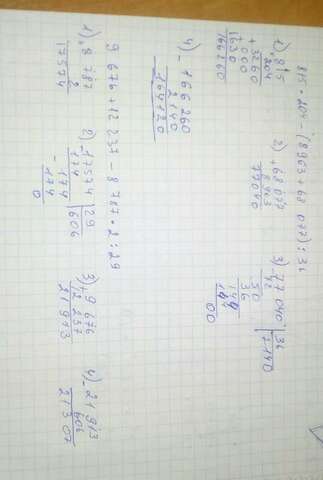 815 · 204 - (8963 + 68 077) : 36
1) 815
204
3260
+ 000
1630
166260
2) + 68 077
8 963
77040
3) 77 040 | 36
72 2140
50
36
144
144
00
4) - 166 260
2140
164120
9 676 + 12 237 - 8 787 · 2 : 29
1) 8 787
2
17574
2) - 17574 | 29
174 606
- 174
174
0
3) + 9 676
12 237
21 913
4) - 21 913
606
21307